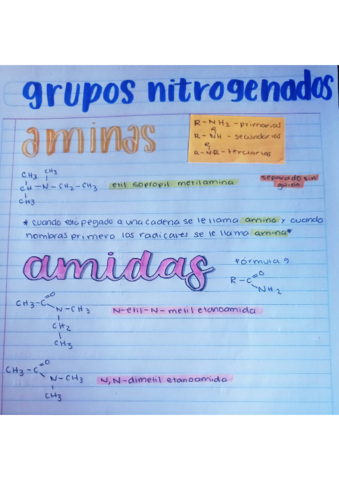 grupos nitrogenados
aminas
R-NH2 - primarias
R-NH - secundarias
R
R-NR - terciarias
CH3 CH3
CH-N-CH2-CH3
CH3
etil isopropil metilamina
separado sin guión
* cuando está pegado a una cadena se le llama amino y cuando
nombras primero los radicales se le llama amina*
amidas
Fórmula g.
R-C=O
NH2
CH3-C=O
N-CH3
CH2
CH3
N-etil-N-metil etanoamida
CH3-C=O
N-CH3
CH3
N,N-dimetil etanoamida